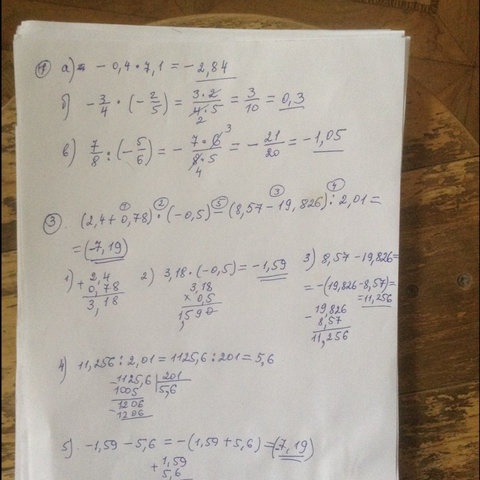 1. а) = - 0,4 · 7,1 = - 2,84
б) - 3/4 · (- 2/5) = 3·2/4·5 = 3/10 = 0,3
2
в) 7/8 : (- 5/6) = - 7·6/8·5 = - 21/20 = - 1,05
3
4
3. (2,4 + 0,78) · (-0,5) - (8,57 - 19,826) : 2,01 =
① ② ⑤ ③ ④
= (-7,19)
1) + 2,4
0,78
3,18
2) 3,18 · (-0,5) = - 1,59
3,18
× 0,5
1,590
3) 8,57 - 19,826 =
= -(19,826 - 8,57) =
= 11,256
- 19,826
8,57
11,256
4) 11,256 : 2,01 = 1125,6 : 201 = 5,6
- 1125,6 | 201
1005 | 5,6
1206
- 1206
5) - 1,59 - 5,6 = -(1,59 + 5,6) = (-7,19)
+ 1,59
5,6